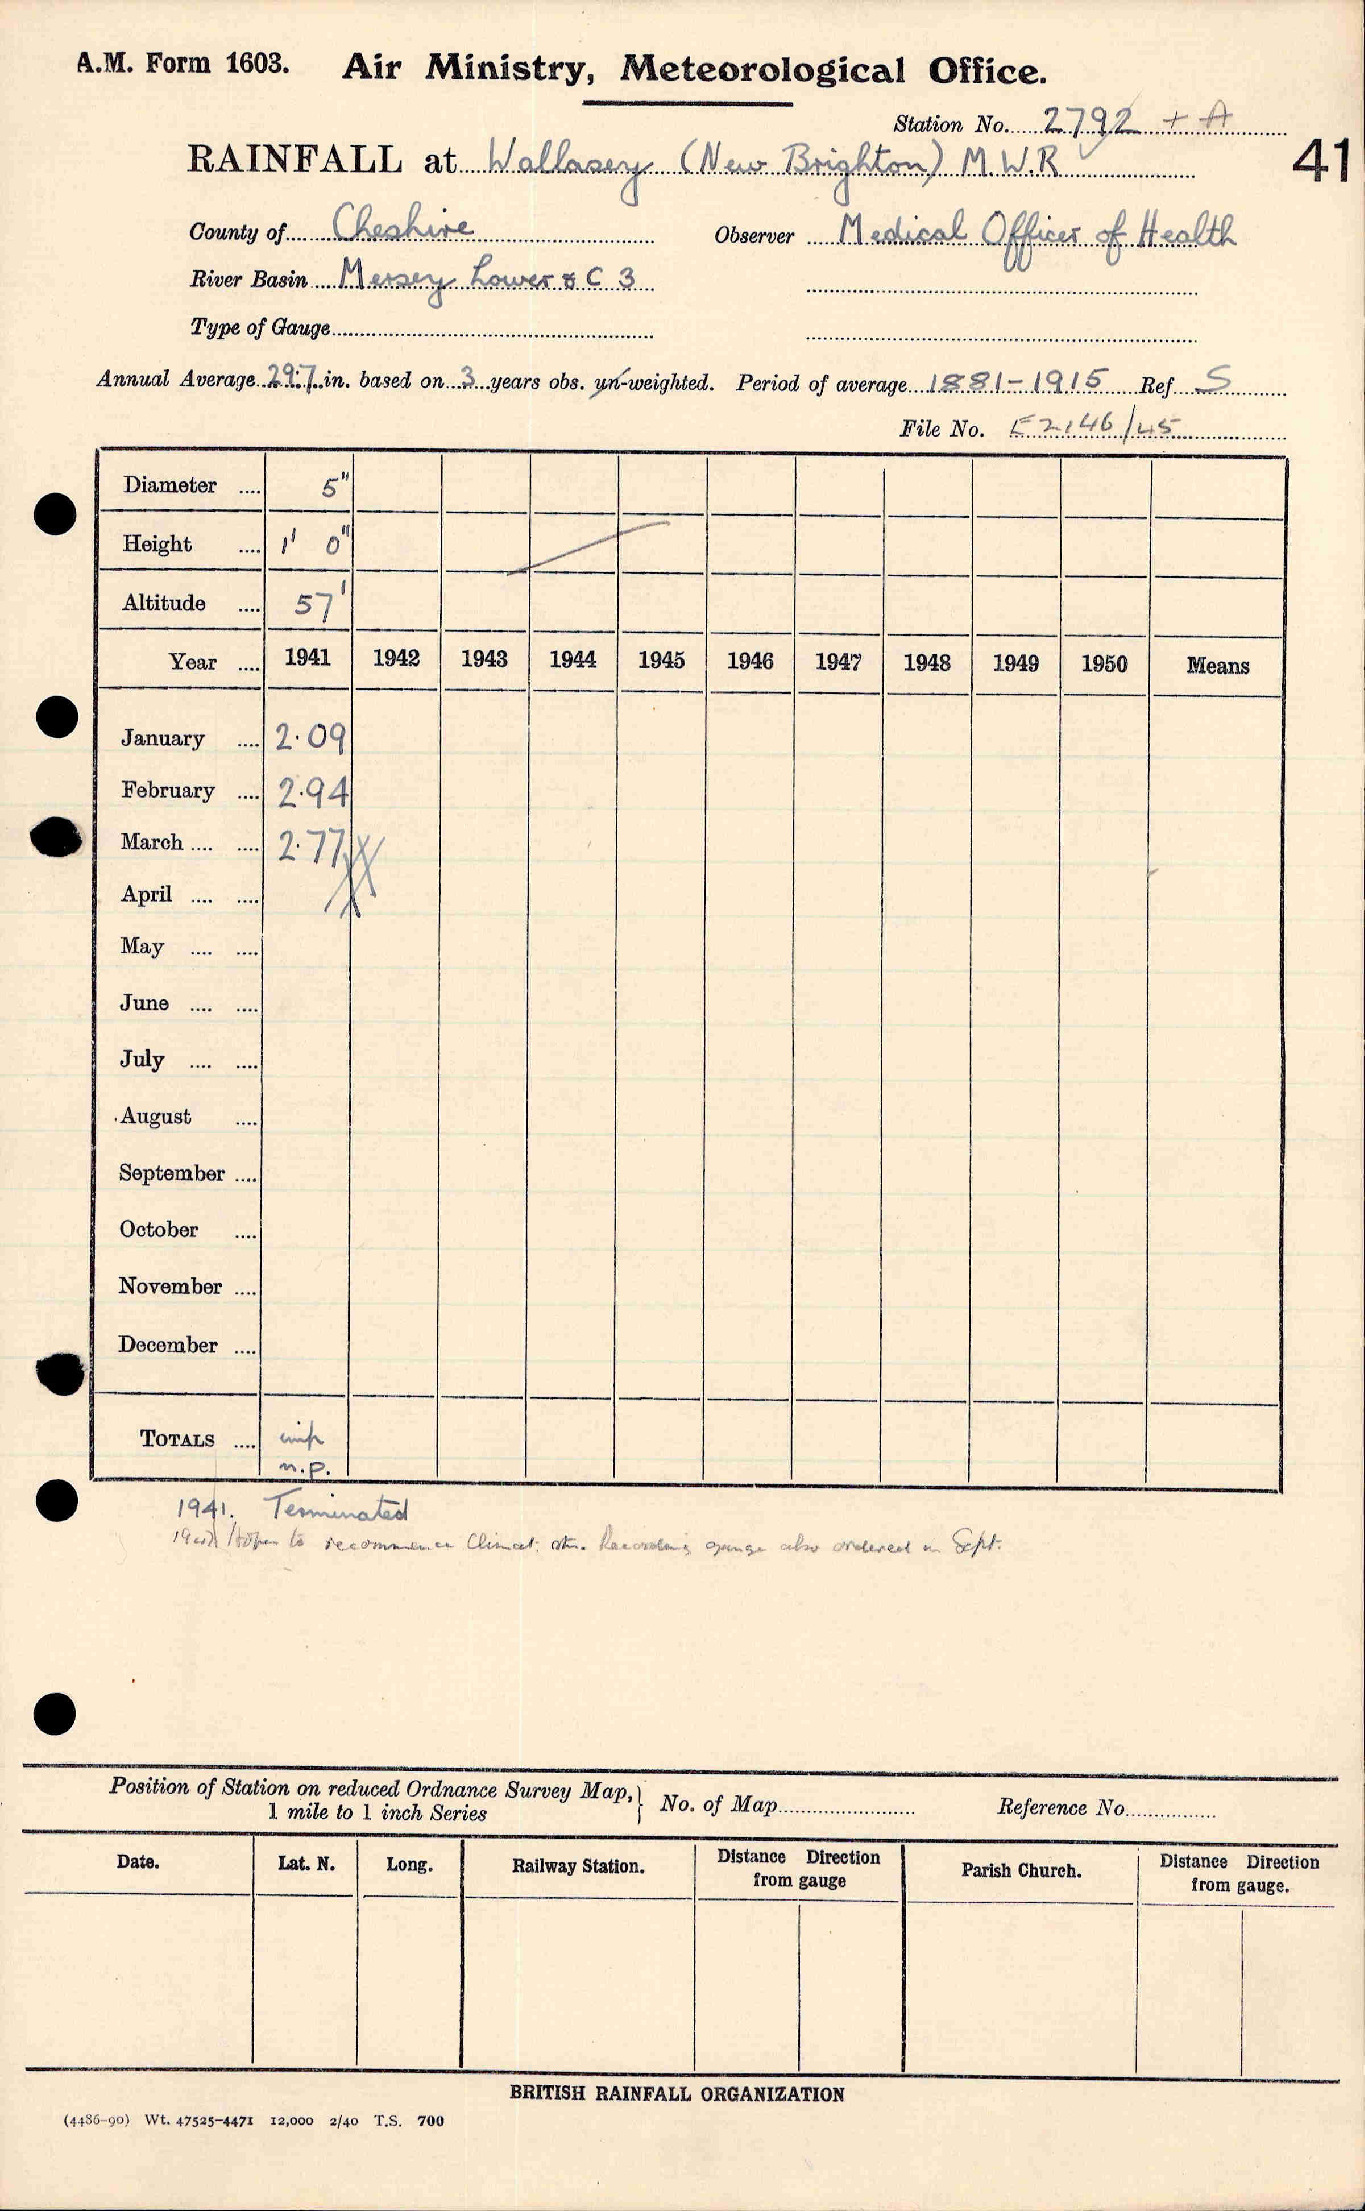 A.M. Form 1603. Air Ministry, Meteorological Office.
Station No. 2792 + A
41
RAINFALL at Wallasey (New Brighton) M.W.R
County of Cheshire Observer Medical Officer of Health
River Basin Mersey Lower & C 3
Type of Gauge
Annual Average 29.7 in. based on 3 years obs. un-weighted. Period of average 1881-1915 Ref. S
File No. E2146/45
Diameter .... 5"
Height .... 1' 0"
Altitude .... 57'
Year .... 1941 1942 1943 1944 1945 1946 1947 1948 1949 1950 Means
January .... 2.09
February .... 2.94
March .... .... 2.77
April .... ....
May .... ....
June .... ....
July .... ....
August ....
September ....
October ....
November ....
December ....
TOTALS .... imp
n.p.
1941. Terminated
Hope to recommence Climat. stn. Recording gauge also ordered in Sept.
Position of Station on reduced Ordnance Survey Map, } No. of Map Reference No.
1 mile to 1 inch Series
Date. Lat. N. Long. Railway Station. Distance Direction from gauge Parish Church. Distance Direction from gauge.
BRITISH RAINFALL ORGANIZATION
(4486-90) Wt. 47525-4471 12,000 2/40 T.S. 700